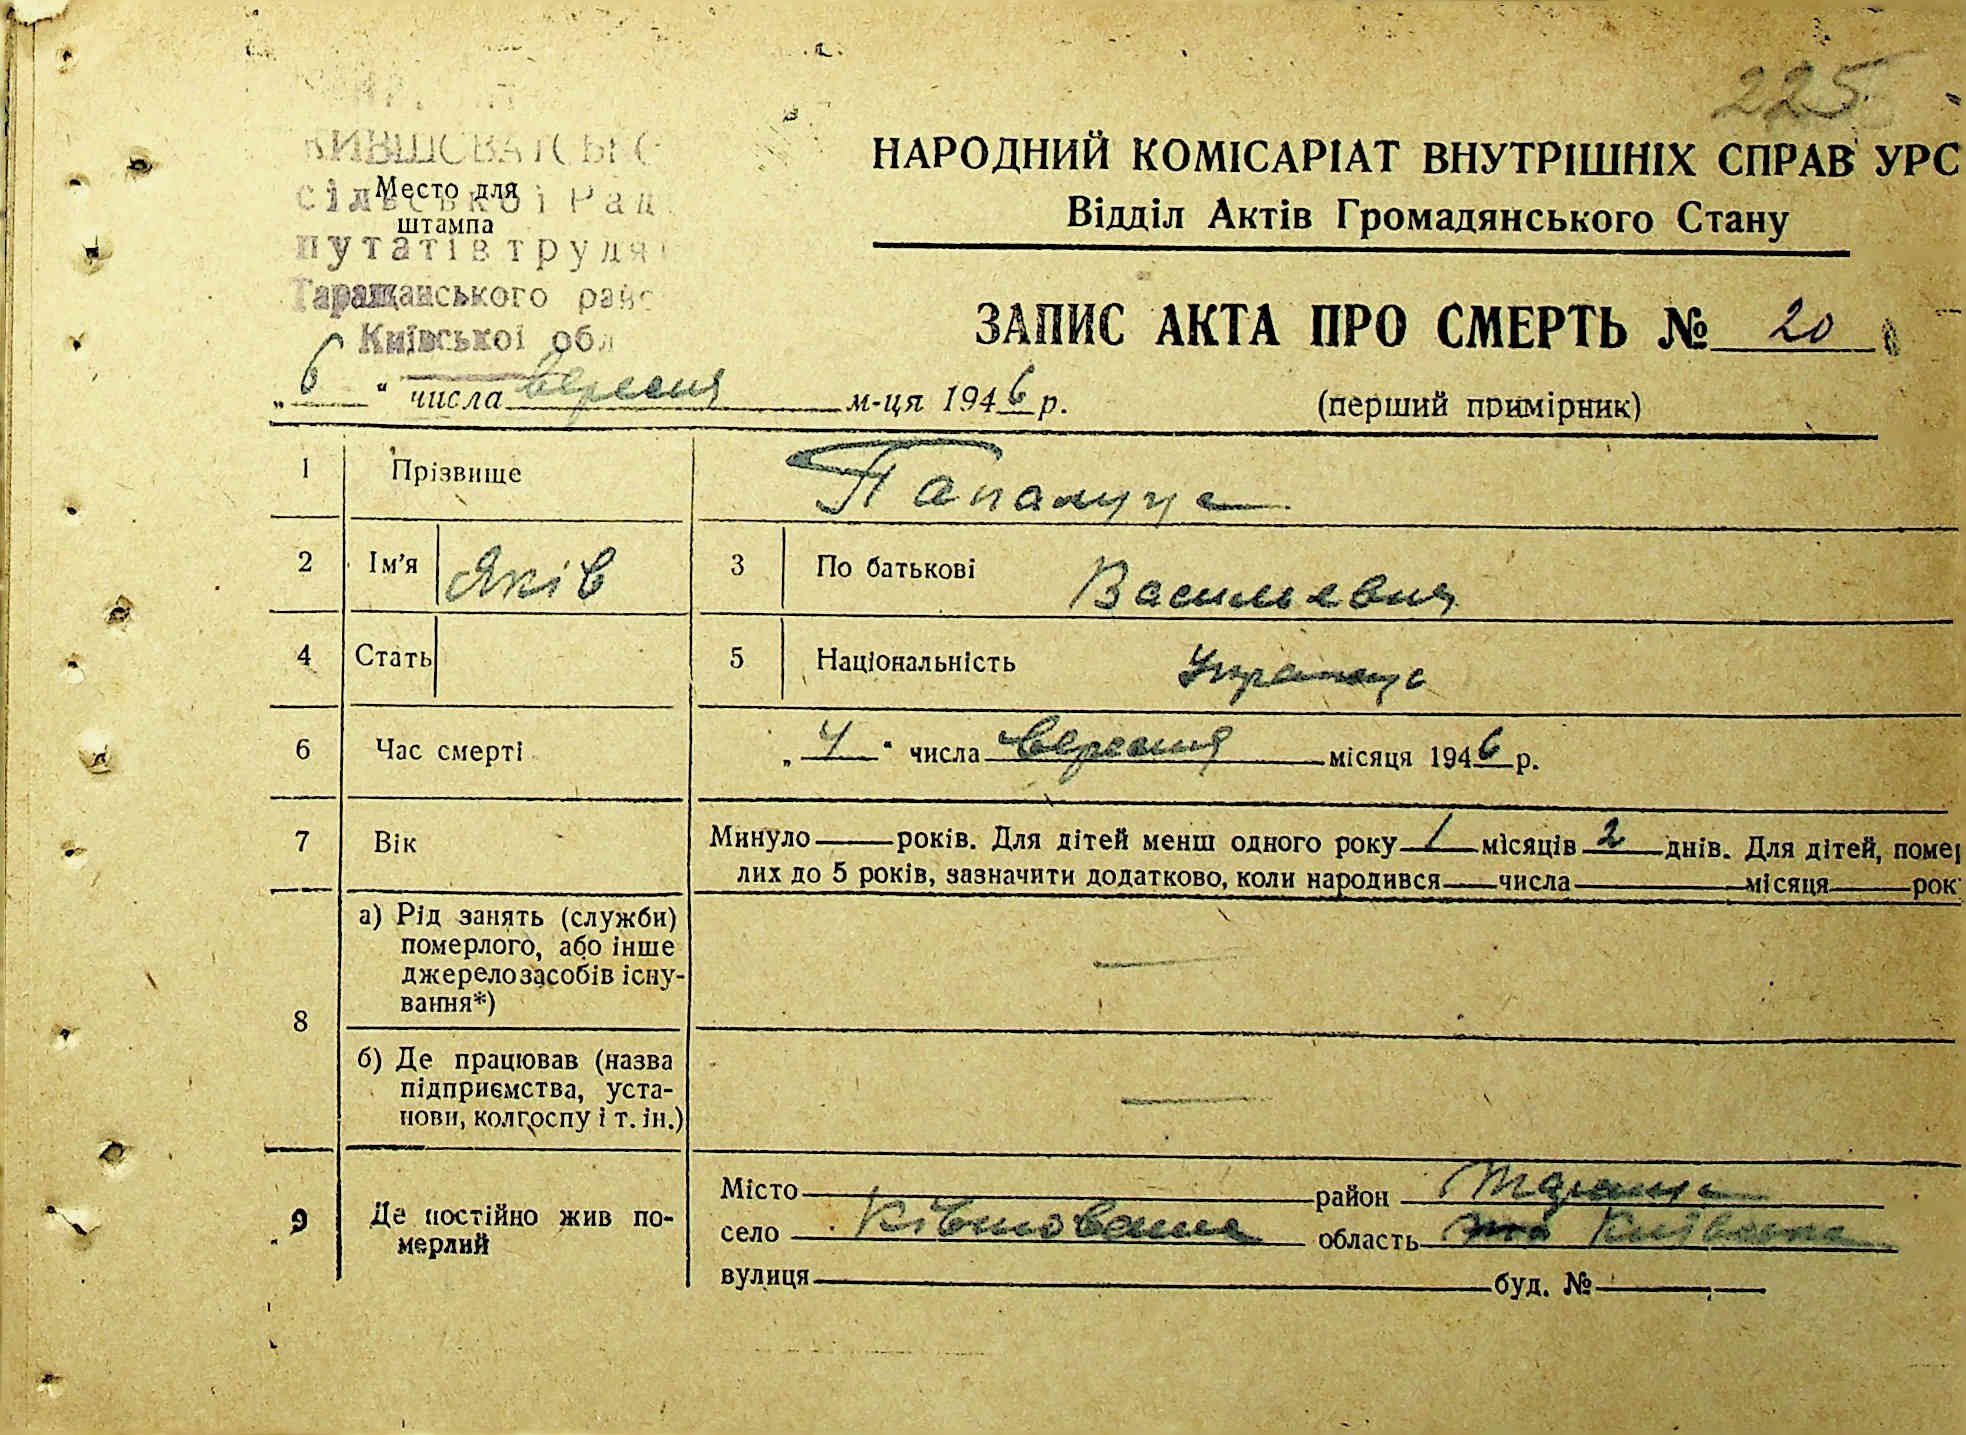 225
сільської Рад
Место для
штампа
путатів трудя
Таращанського рай
Київської обл
НАРОДНИЙ КОМІСАРІАТ ВНУТРІШНІХ СПРАВ УРС
Відділ Актів Громадянського Стану
ЗАПИС АКТА ПРО СМЕРТЬ № 20
„6“ числа вересня м-ця 1946 р.
(перший примірник)
1 Прізвище
2 Ім'я Яків 3 По батькові Васильевич
4 Стать 5 Національність
6 Час смерті „4“ числа вересня місяця 1946 р.
7 Вік Минуло — років. Для дітей менш одного року 1 місяців 2 днів. Для дітей, помер
лих до 5 років, зазначити додатково, коли народився числа місяця рок
8 а) Рід занять (служби)
померлого, або інше
джерело засобів існу-
вання*)
—
б) Де працював (назва
підприємства, уста-
нови, колгоспу і т. ін.)
—
9 Де постійно жив по-
мерлий
Місто район Тараща
село область Київська
вулиця буд. №